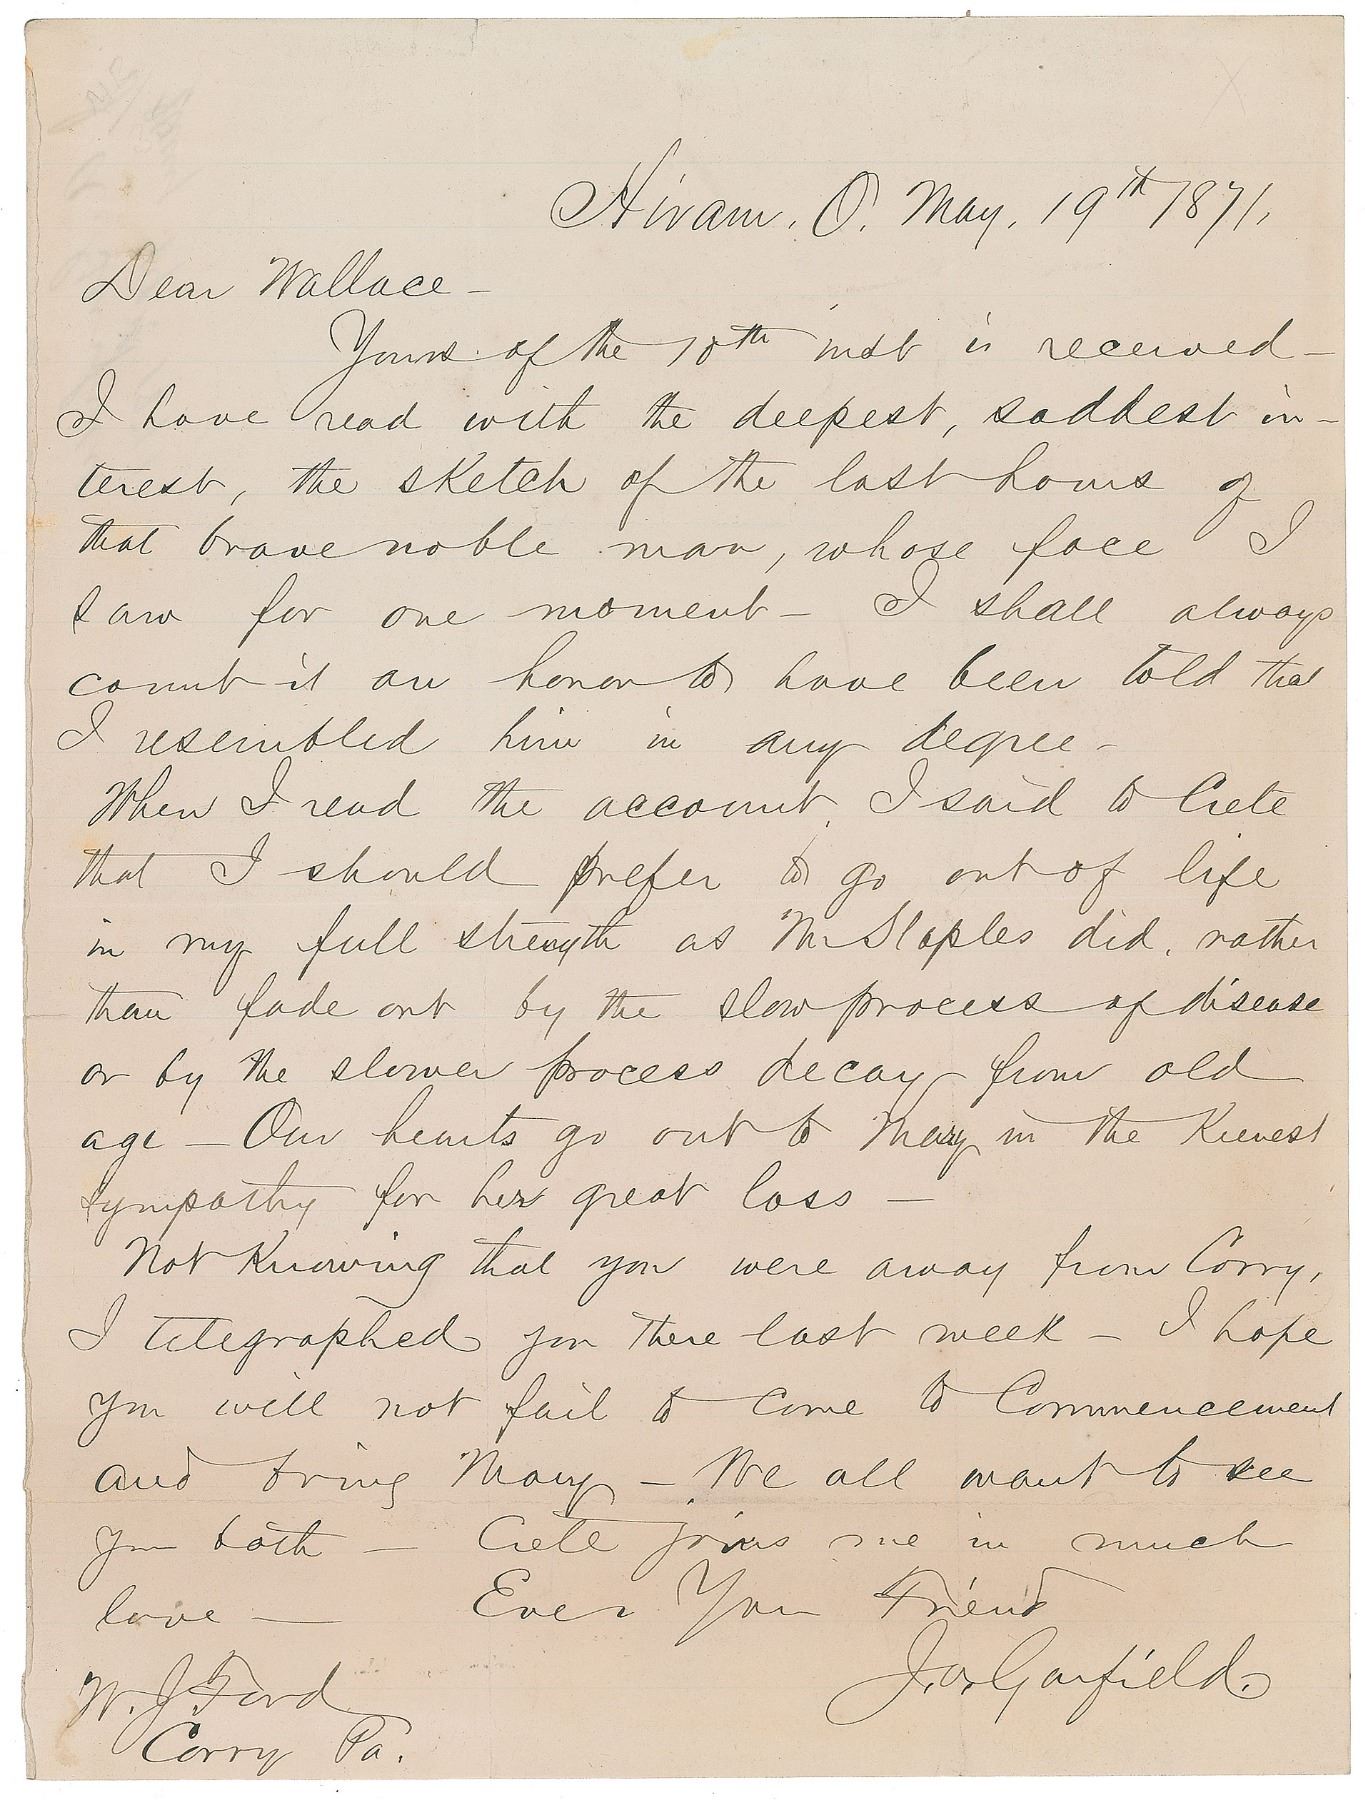 Hiram, O. May, 19th 1871,
Dear Wallace -
Yours of the 10th inst is received -
I have read with the deepest, saddest in-
terest, the sketch of the last hours of
that brave noble man, whose face I
saw for one moment - I shall always
count it an honor to have been told that
I resembled him in any degree -
When I read the account, I said to Crete
that I should prefer to go out of life
in my full strength as Mr Staples did, rather
than fade out by the slow process of disease
or by the slower process decay from old
age - Our hearts go out to Mary in the Keenest
sympathy for her great loss -
Not Knowing that you were away from Corry,
I telegraphed you there last week - I hope
you will not fail to come to Commencement
and bring Mary - We all want to see
you both - Crete joins me in much
love - Ever Your Friend
J. A. Garfield.
W. J. Ford
Corry Pa.